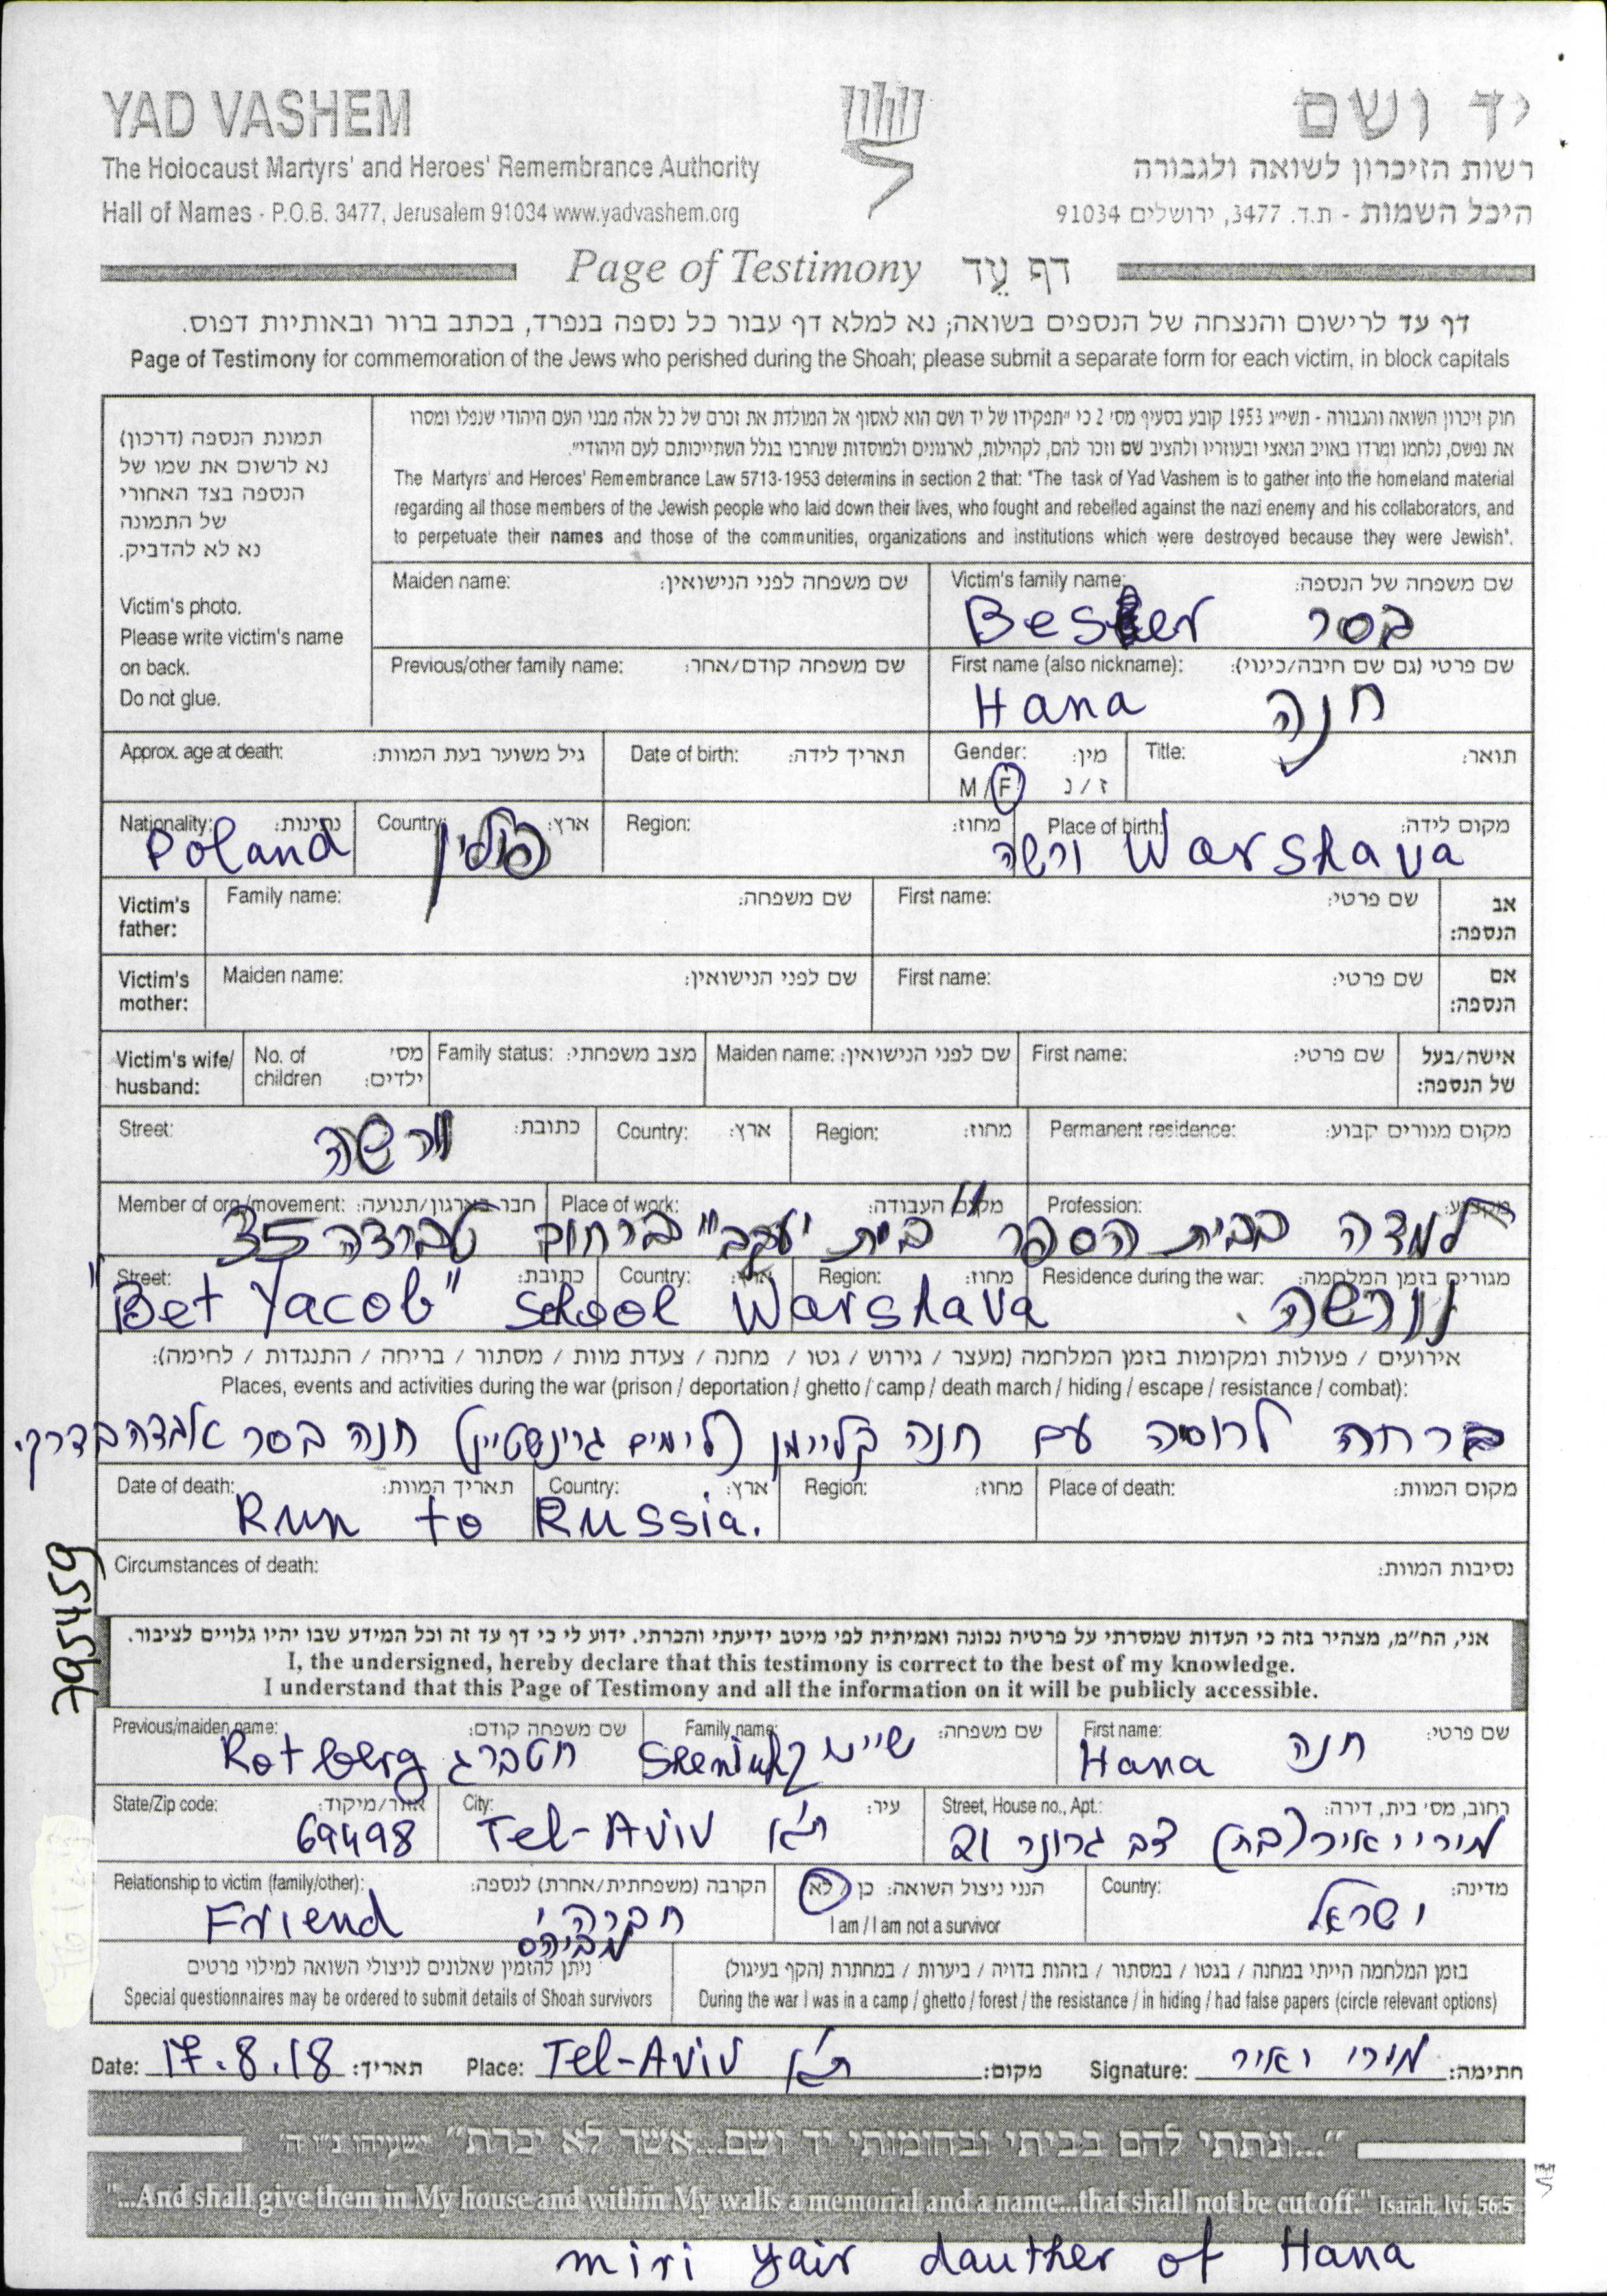 YAD VASHEM יד ושם
The Holocaust Martyrs' and Heroes' Remembrance Authority רשות הזיכרון לשואה ולגבורה
Hall of Names - P.O.B. 3477, Jerusalem 91034 www.yadvashem.org היכל השמות - ת.ד. 3477, ירושלים 91034
Page of Testimony דף עֵד
דף עד לרישום והנצחה של הנספים בשואה; נא למלא דף עבור כל נספה בנפרד, בכתב ברור ובאותיות דפוס.
Page of Testimony for commemoration of the Jews who perished during the Shoah; please submit a separate form for each victim, in block capitals
תמונת הנספה (דרכון)
נא לרשום את שמו של
הנספה בצד האחורי
של התמונה
נא לא להדביק.
Victim's photo.
Please write victim's name
on back.
Do not glue.
חוק זיכרון השואה והגבורה - תשי״ג 1953 קובע בסעיף מס׳ 2 כי ״תפקידו של יד ושם הוא לאסוף אל המולדת את זכרם של כל אלה מבני העם היהודי שנפלו ומסרו
את נפשם, נלחמו ומרדו באויב הנאצי ובעוזריו ולהציב שם וזכר להם, לקהילות, לארגונים ולמוסדות שנחרבו בגלל השתייכותם לעם היהודי״.
The Martyrs' and Heroes' Remembrance Law 5713-1953 determins in section 2 that: "The task of Yad Vashem is to gather into the homeland material
regarding all those members of the Jewish people who laid down their lives, who fought and rebelled against the nazi enemy and his collaborators, and
to perpetuate their names and those of the communities, organizations and institutions which were destroyed because they were Jewish".
Maiden name: שם משפחה לפני הנישואין: Victim's family name: שם משפחה של הנספה:
Besser בסר
Previous/other family name: שם משפחה קודם/אחר: First name (also nickname): שם פרטי (גם שם חיבה/כינוי):
Hana חנה
Approx. age at death: גיל משוער בעת המוות: Date of birth: תאריך לידה: Gender: מין: Title: תואר:
M / F ז / נ
Nationality: נתינות: Country: ארץ: Region: מחוז: Place of birth: מקום לידה:
Poland פולין ורשה Warshava
Victim's father: Family name: שם משפחה: First name: שם פרטי: אב הנספה:
Victim's mother: Maiden name: שם לפני הנישואין: First name: שם פרטי: אם הנספה:
Victim's wife/ husband: No. of children מס׳ ילדים: Family status: מצב משפחתי: Maiden name: שם לפני הנישואין: First name: שם פרטי: אישה/בעל של הנספה:
Street: כתובת: Country: ארץ: Region: מחוז: Permanent residence: מקום מגורים קבוע:
ורשה
Member of org./movement: חבר בארגון/תנועה: Place of work: מקום העבודה: Profession: מקצוע:
למדה בבית הספר בית יעקב" ברחוב טברדה 35
Street: כתובת: Country: ארץ: Region: מחוז: Residence during the war: מגורים בזמן המלחמה:
"Bet Yacob" School Warshava ורשה
אירועים / פעולות ומקומות בזמן המלחמה (מעצר / גירוש / גטו / מחנה / צעדת מוות / מסתור / בריחה / התנגדות / לחימה):
Places, events and activities during the war (prison / deportation / ghetto / camp / death march / hiding / escape / resistance / combat):
ברחה לרוסיה עם חנה קליימן (לימים גרינשטיין) חנה בסר אבדה בדרך.
Date of death: תאריך המוות: Country: ארץ: Region: מחוז: Place of death: מקום המוות:
Run to Russia.
Circumstances of death: נסיבות המוות:
795459
אני, הח״מ, מצהיר בזה כי העדות שמסרתי על פרטיה נכונה ואמיתית לפי מיטב ידיעתי והכרתי. ידוע לי כי דף עד זה וכל המידע שבו יהיו גלויים לציבור.
I, the undersigned, hereby declare that this testimony is correct to the best of my knowledge.
I understand that this Page of Testimony and all the information on it will be publicly accessible.
Previous/maiden name: שם משפחה קודם: Family name: שם משפחה: First name: שם פרטי:
Rotberg Hana חנה
State/Zip code: אזור/מיקוד: City: עיר: Street, House no., Apt.: רחוב, מס׳ בית, דירה:
69498 Tel-Aviv ת"א מירי יאיר (בת) דב גרונר 21
Relationship to victim (family/other): הקרבה (משפחתית/אחרת) לנספה: הנני ניצול השואה: כן / לא Country: מדינה:
I am / I am not a survivor
Friend חברה ישראל
מביה"ס
ניתן להזמין שאלונים לניצולי השואה למילוי פרטים בזמן המלחמה הייתי במחנה / בגטו / במסתור / בזהות בדויה / ביערות / במחתרת (הקף בעיגול)
Special questionnaires may be ordered to submit details of Shoah survivors During the war I was in a camp / ghetto / forest / the resistance / in hiding / had false papers (circle relevant options)
Date: 17.8.18 תאריך: Place: Tel-Aviv ת"א מקום: Signature: מירי יאיר חתימה:
״...ונתתי להם בביתי ובחומותי יד ושם...אשר לא יכרת״ ישעיהו נ״ו ה׳
"...And shall give them in My house and within My walls a memorial and a name...that shall not be cut off." Isaiah, lvi, 56:5
miri yair dauther of Hana